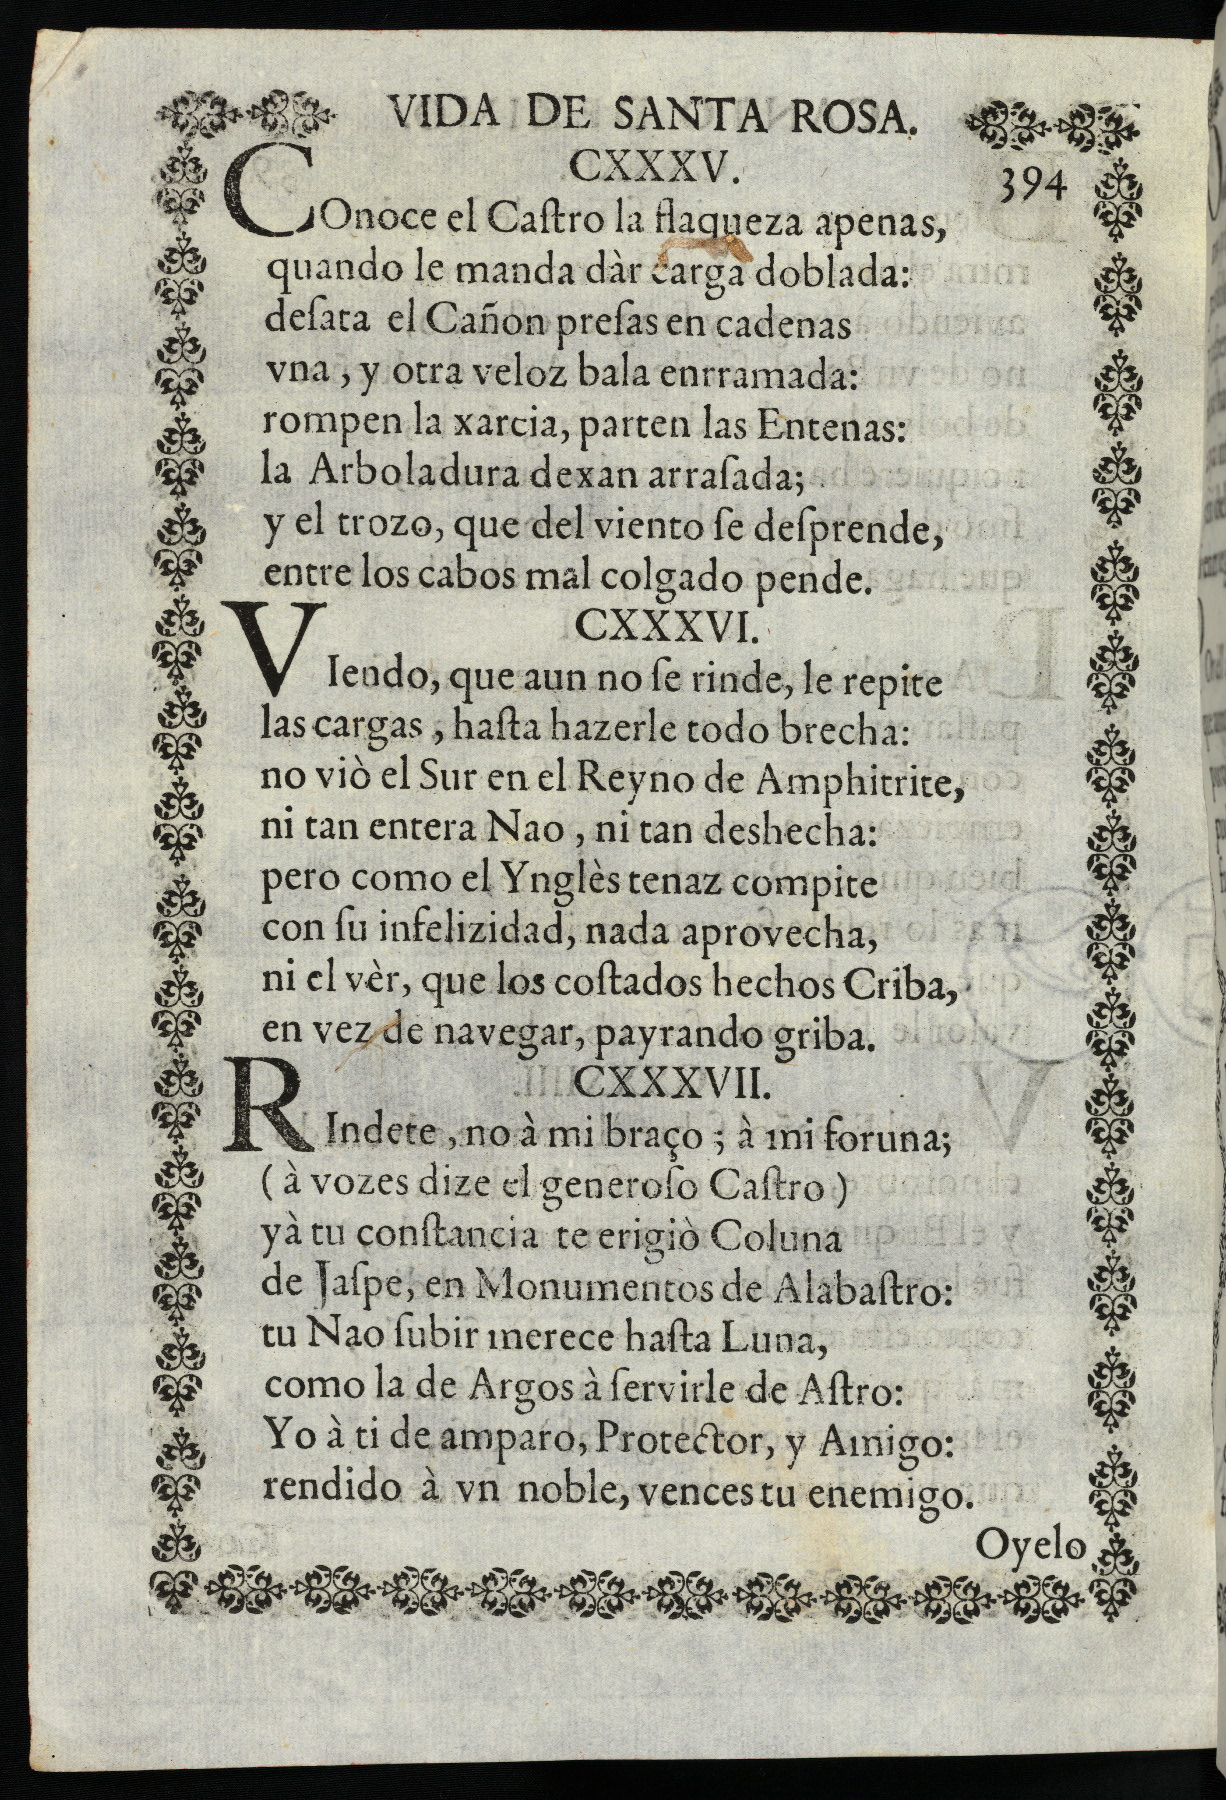 VIDA DE SANTA ROSA.
394
CXXXV.
COnoce el Caſtro la flaqueza apenas,
quando le manda dàr carga doblada:
deſata el Cañon preſas en cadenas
vna, y otra veloz bala enrramada:
rompen la xarcia, parten las Entenas:
la Arboladura dexan arraſada;
y el trozo, que del viento ſe deſprende,
entre los cabos mal colgado pende.
CXXXVI.
VIendo, que aun no ſe rinde, le repite
las cargas, haſta hazerle todo brecha:
no viò el Sur en el Reyno de Amphitrite,
ni tan entera Nao, ni tan deshecha:
pero como el Ynglès tenaz compite
con ſu infelizidad, nada aprovecha,
ni el vèr, que los coſtados hechos Criba,
en vez de navegar, payrando griba.
CXXXVII.
RIndete, no à mi braço; à mi foruna;
(à vozes dize el generoſo Caſtro)
yà tu conſtancia te erigiò Coluna
de Jaſpe, en Monumentos de Alabaſtro:
tu Nao ſubir merece haſta Luna,
como la de Argos à ſervirle de Aſtro:
Yo à ti de amparo, Protector, y Amigo:
rendido à vn noble, vences tu enemigo.
Oyelo